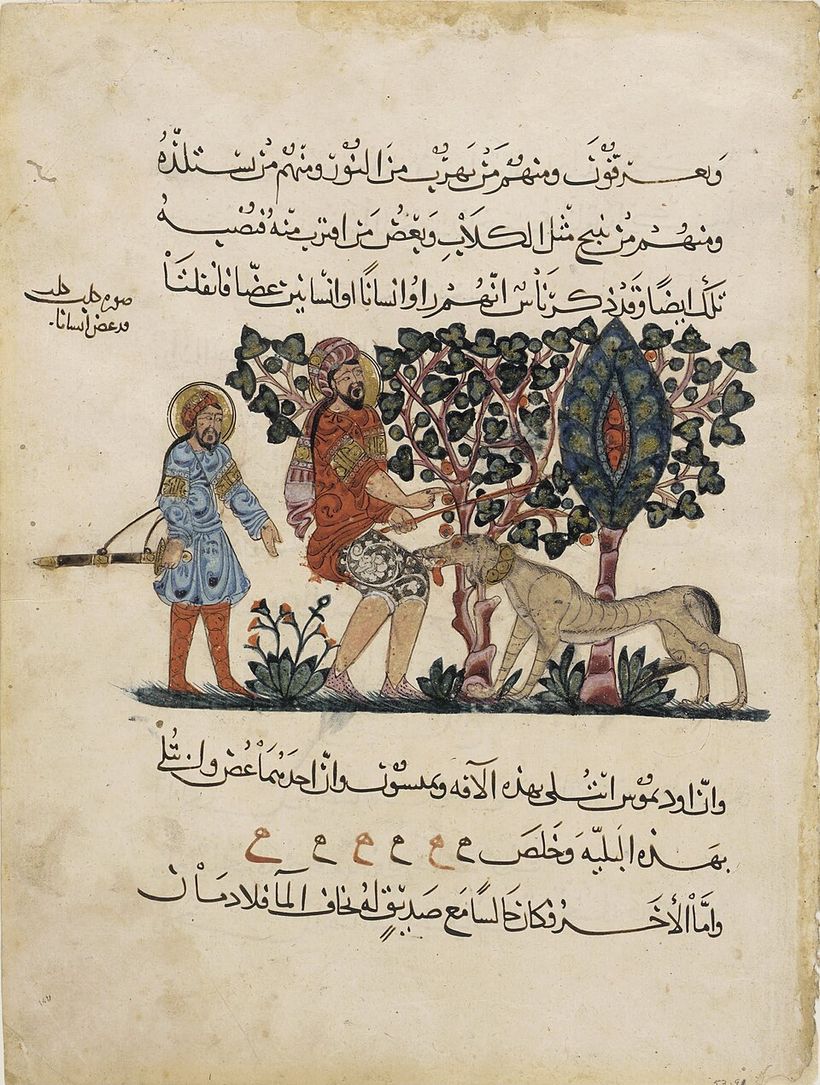 ويعرقون ومنهم من يهرب من النور ومنهم من يستلذه
ومنهم من ينبح مثل الكلاب وبعض من اقترب منه فيصيبه
تلك ايضا وقد ذكر ناس انهم راوا انسانا او انسانين عضا فانفلتا
صورة كلب كلب
قد عض انسانا
وان اوديموس ابتلى بهذه الآفه وان احدهما عض ولن بتلى
بهذه البليه وخلص ح ح ح ح ح ح
واما الأخر فكان جالسا مع صديق له يخاف الما فلا